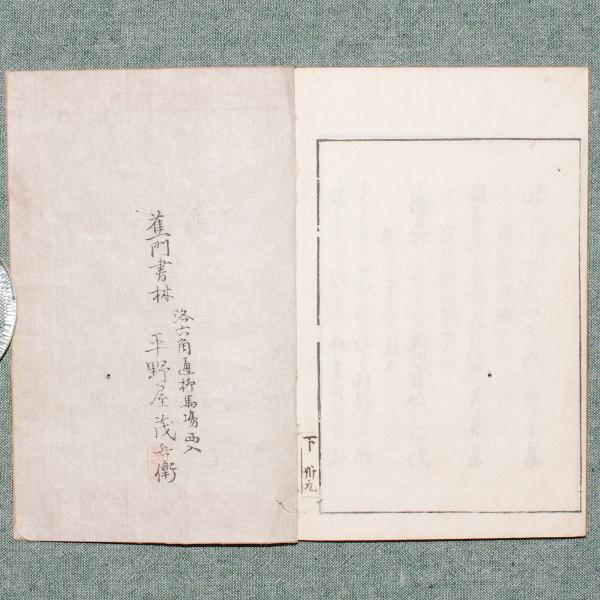 下 卅九
蕉門書林
洛六角通柳馬場西入
平野屋茂兵衛